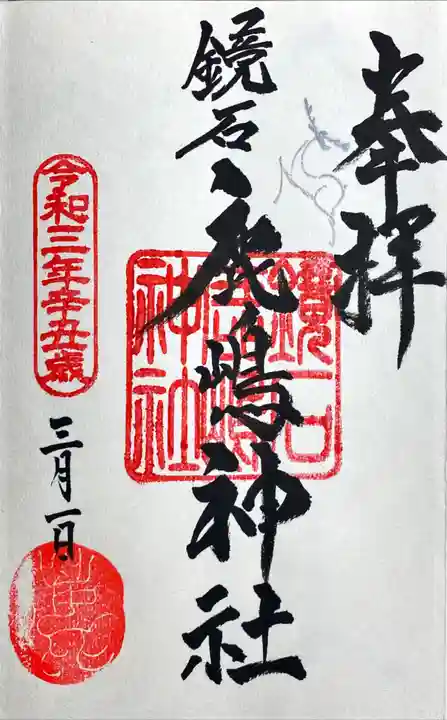 奉拝
鏡石
鹿嶋神社
鏡石
鹿嶋
神社
令和三年辛丑歳
三月一日